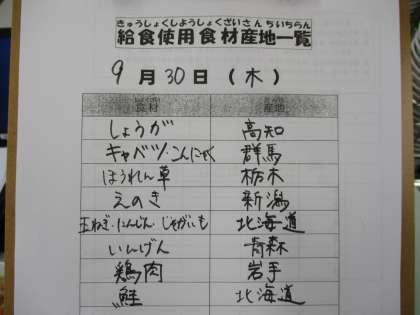 きゅうしょくしようしょくざいさんちいちらん
給食使用食材産地一覧
9月30日(木)
食材 産地
しょうが 高知
キャベツ・こんにゃく 群馬
ほうれん草 栃木
えのき 新潟
玉ねぎ・にんじん・じゃがいも 北海道
いんげん 青森
鶏肉 岩手
鮭 北海道